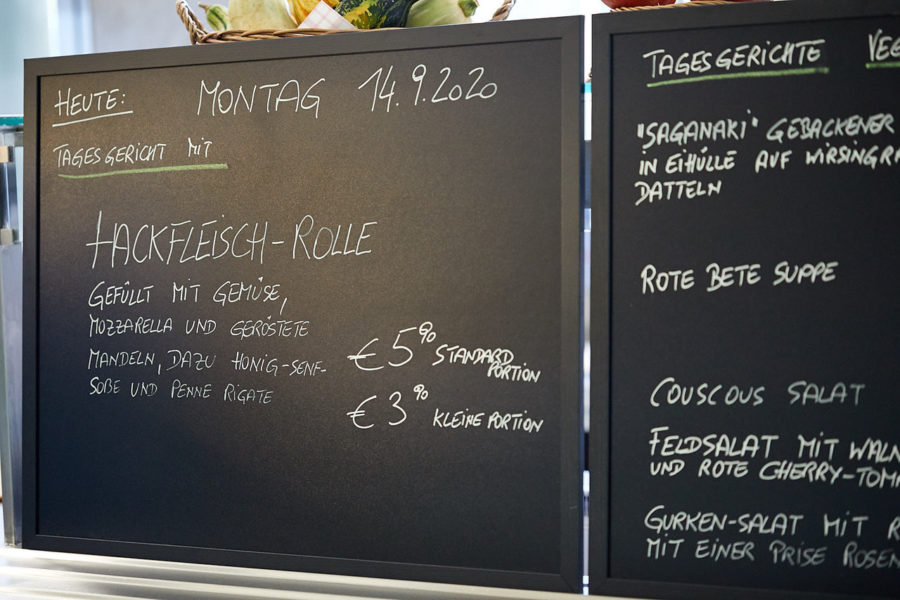 HEUTE: MONTAG 14.9.2020
TAGESGERICHT MIT
HACKFLEISCH-ROLLE
GEFÜLLT MIT GEMÜSE,
MOZZARELLA UND GERÖSTETE
MANDELN, DAZU HONIG-SENF-
SOßE UND PENNE RIGATE
€ 5 STANDARD
PORTION
€ 3 KLEINE PORTION
TAGESGERICHTE
"SAGANAKI" GEBACKENER
IN EIHÜLLE AUF
DATTELN
ROTE BETE SUPPE
COUSCOUS SALAT
FELDSALAT MIT
UND ROTE
GURKEN-SALAT MIT
MIT EINER PRISE